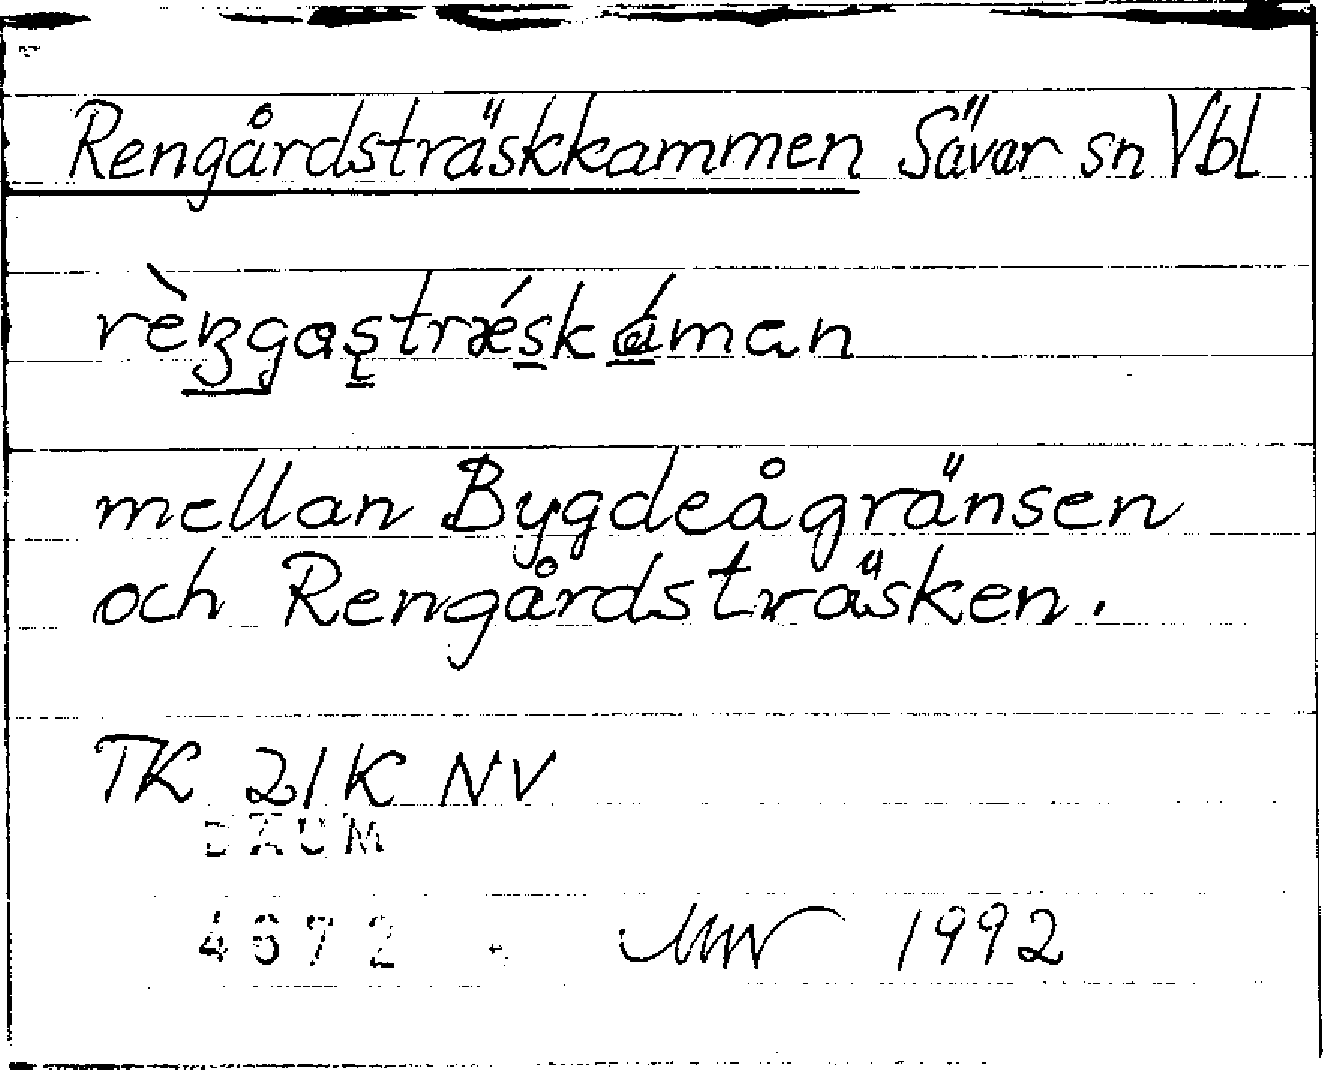 Rengårdsträskkammen Sävar sn Vbl
rèŋgaştrǽskáman
mellan Bygdeågränsen
och Rengårdsträsken.
TK 21K NV
DAUM
4672 1992